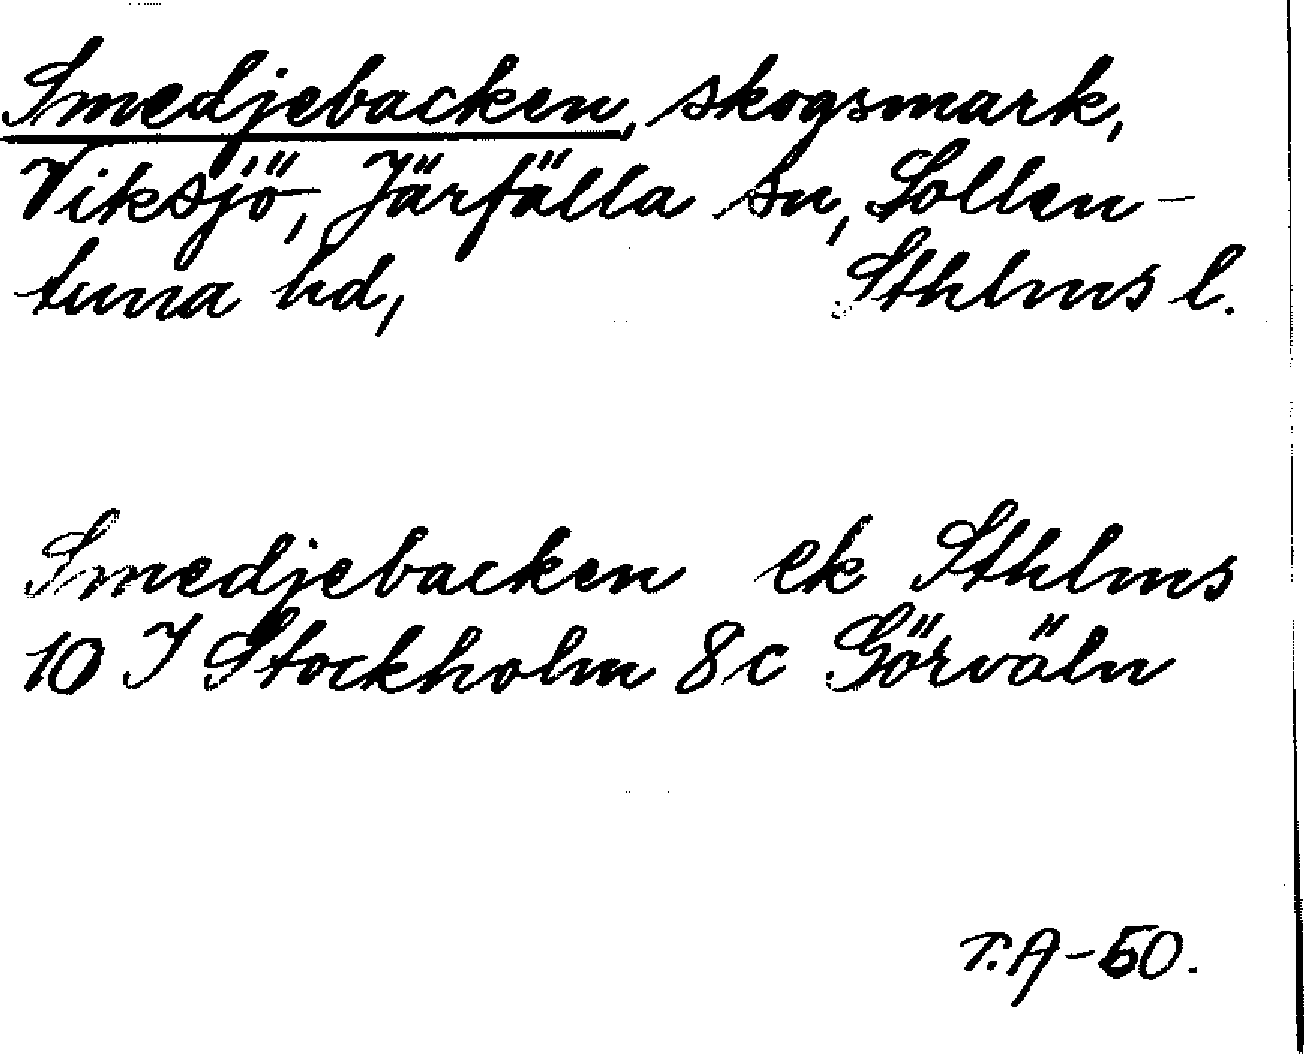 Smedjebacken, skogsmark,
Viksjö, Järfälla sn, Sollen-
tuna hd, Sthlms l.
Smedjebacken ek Sthlms
10 J Stockholm 8c Görväln
T.A-50.